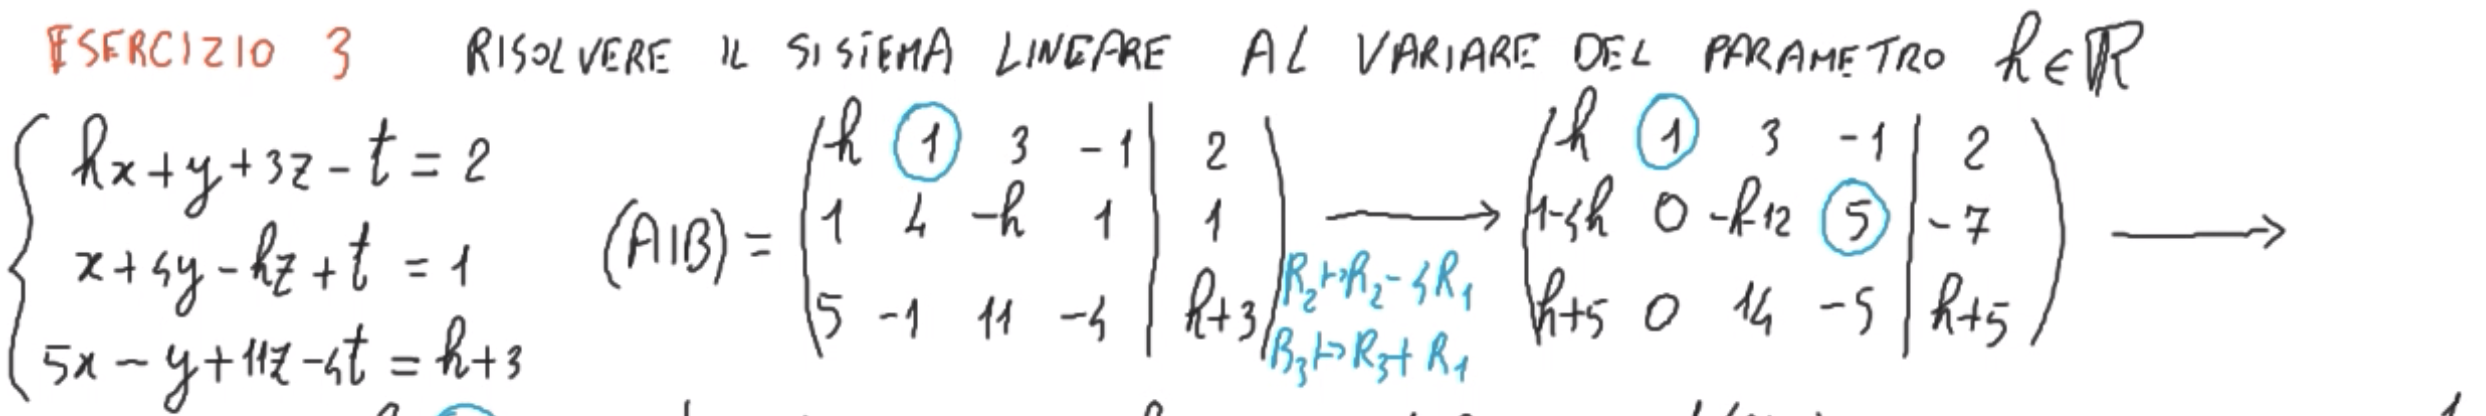 ESERCIZIO 3 RISOLVERE IL SISTEMA LINEARE AL VARIARE DEL PARAMETRO h∈ℝ
{ hx+y+3z-t=2
x+4y-hz+t=1
5x-y+11z-4t=h+3
(A|B) = ( h 1 3 -1 | 2
1 4 -h 1 | 1
5 -1 11 -4 | h+3 )
R₂↦R₂-4R₁
R₃↦R₃+R₁
→ ( h 1 3 -1 | 2
1-4h 0 -h-12 5 | -7
h+5 0 14 -5 | h+5 ) →